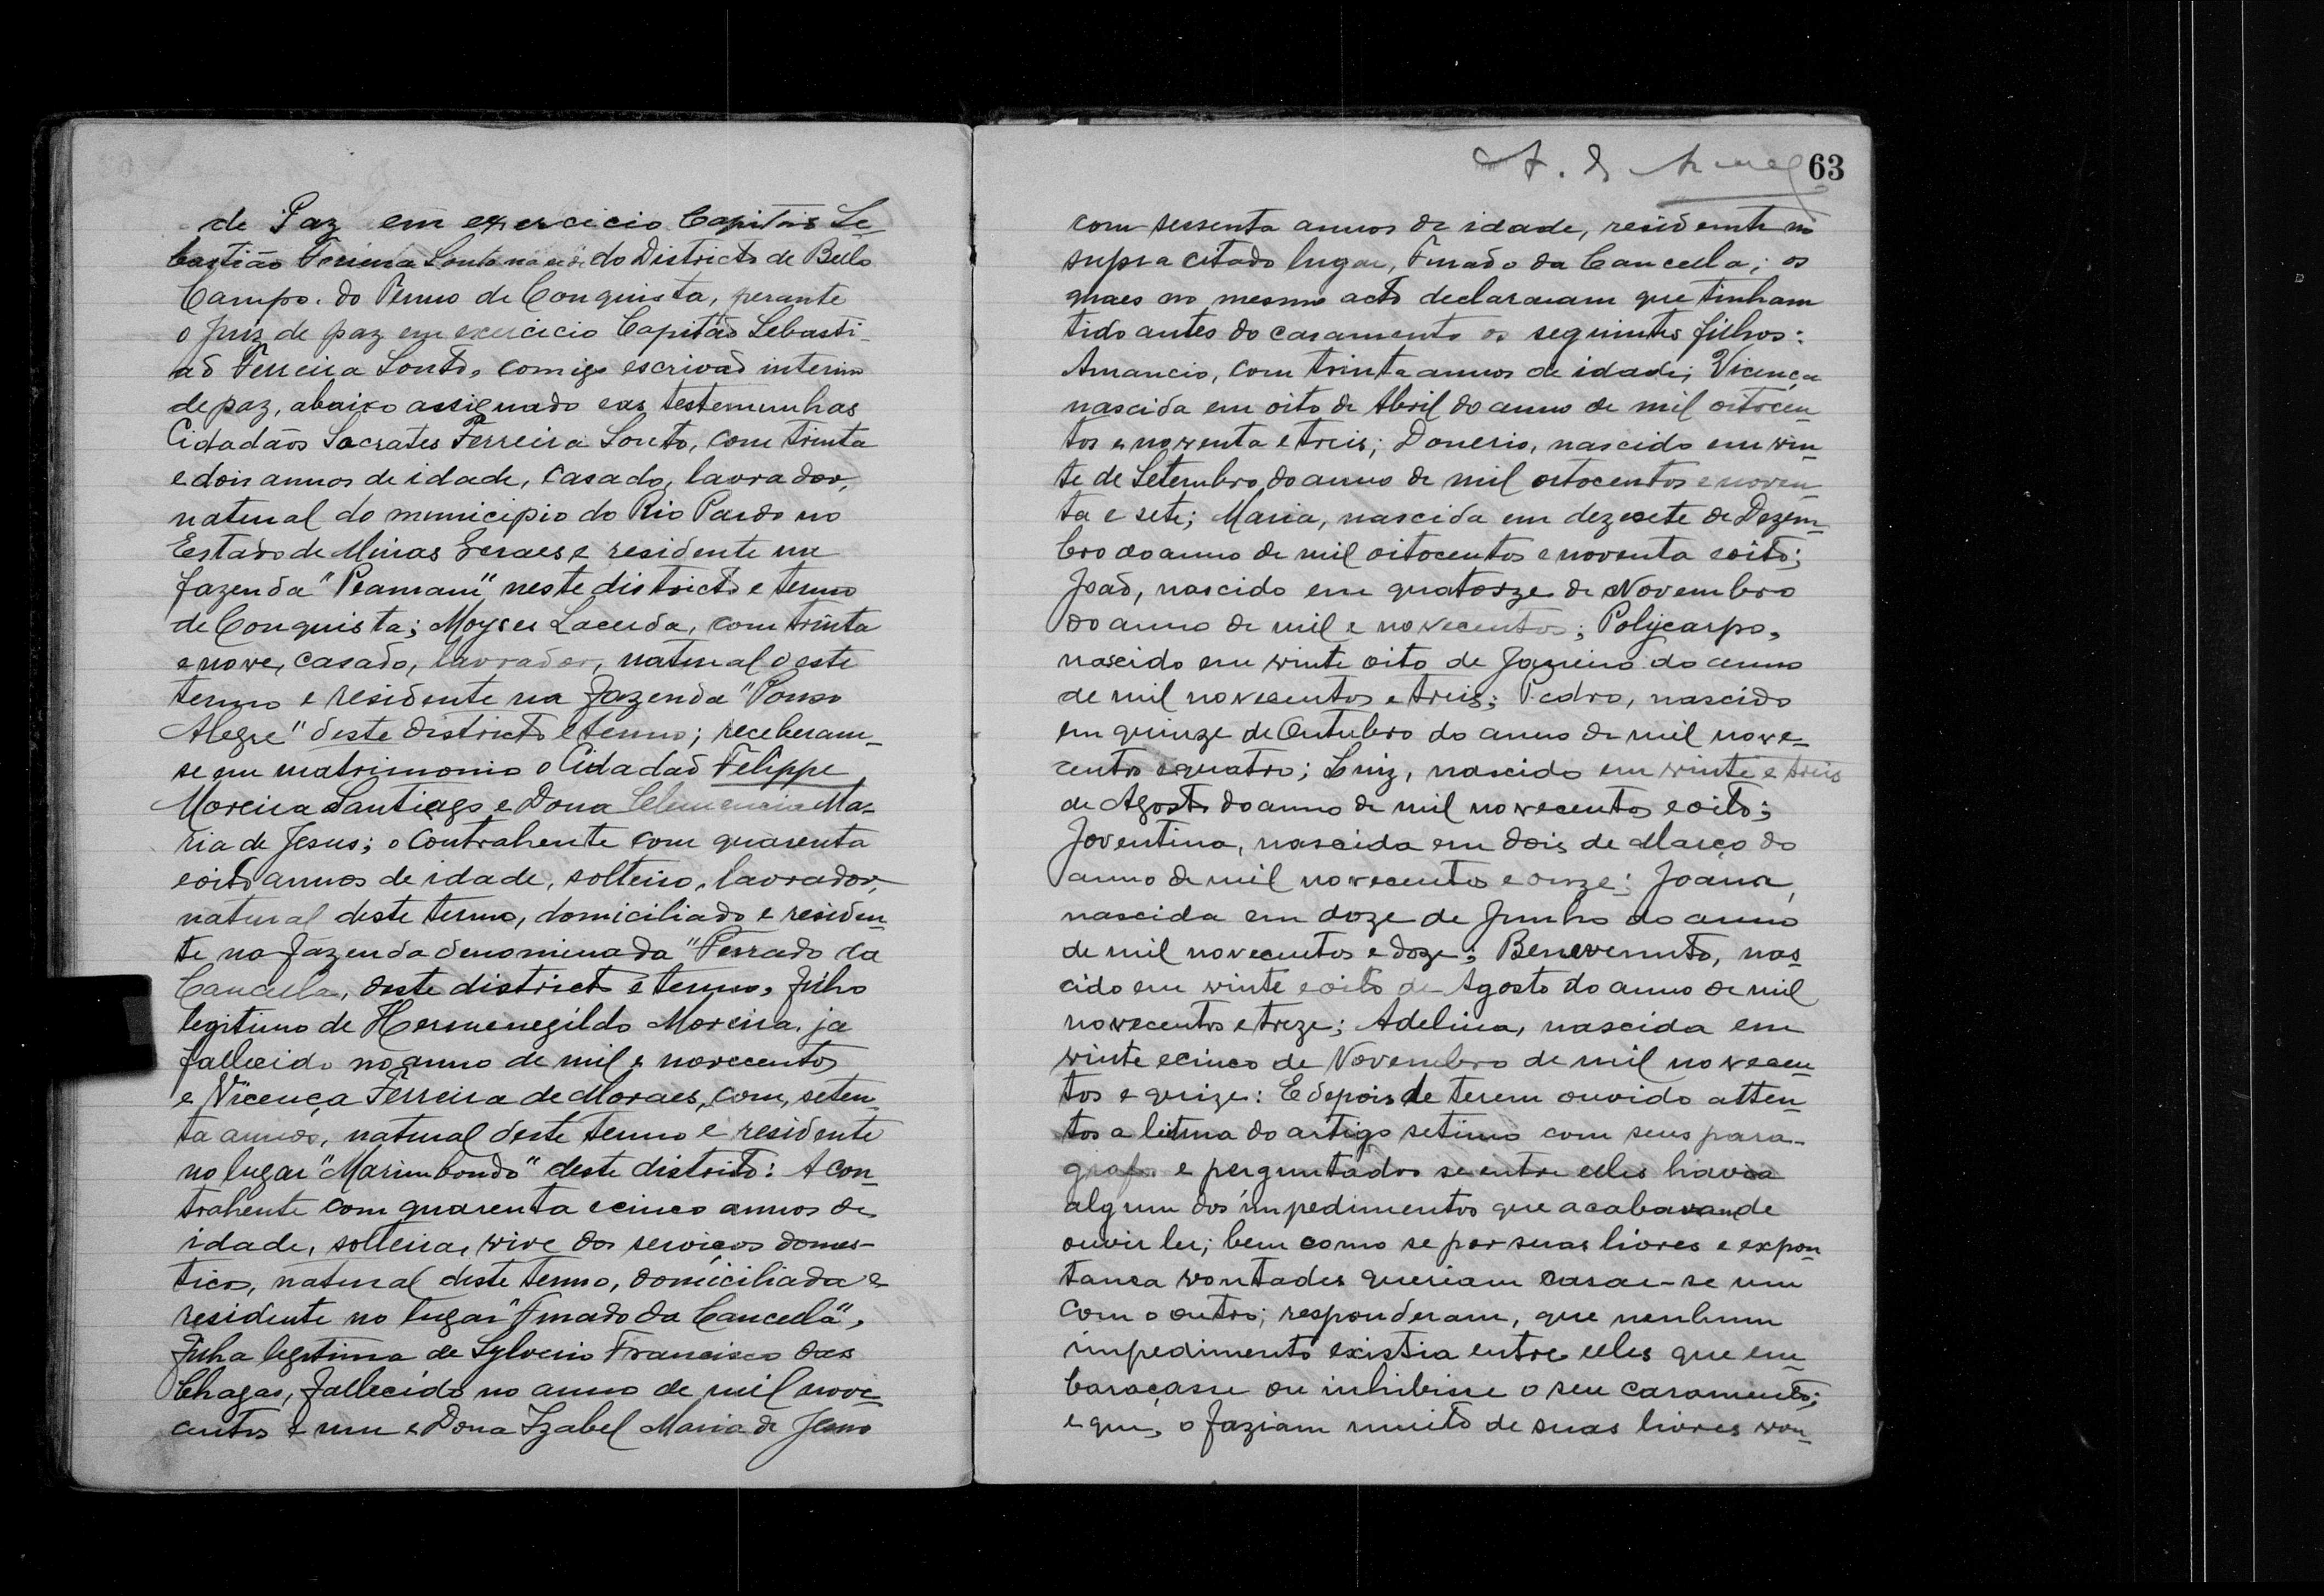 de Paz em exercicio Capitão Se-
bastião Ferreira Souto do Districto de Bello
Campo. do Termo de Conquista, perante
o Juiz de paz em exercicio Capitão Sebasti-
ão Ferreira Souto, comigo escrivaõ interino
de paz, abaixo assignado e as testemunhas
Cidadãos Socrates Ferreira Souto, com trinta
e dois annos de idade, casado, lavrador,
natural do municipio do Rio Pardo no
Estado de Minas Geraes e residente na
fazenda "" neste districto e termo
de Conquista; Moyses Lacerda, com trinta
e nove, casado, lavrador, natural deste
termo e residente na fazenda "Pouso
Alegre" deste districto e termo; receberam-
se em matrimonio o Cidadaõ Felippe
Moreira Santiago e Dona Clemencia Ma-
ria de Jesus; o contrahente com quarenta
e oito annos de idade, solteiro, lavrador,
natural deste termo, domiciliado e residen-
te na fazenda denominada "Furado da
Cancella, deste districto e termo, filho
legitimo de Hermenegildo Moreira, ja
fallecido no anno de mil e novecentos
e Vicença Ferreira de Moraes, com, seten-
ta annos, natural deste termo e residente
no lugar "Marimbondo" deste distrito: A con-
trahente com quarenta e cinco annos de
idade, solteira, vive dos serviços domes-
ticos, natural deste termo, domiciliada e
residente no lugar "Furado da Cancella",
filha legitima de Sylverio Francisco das
Chagas, fallecido no anno de mil nove-
centos e um e Dona Izabel Maria de Jesus
63
com sessenta annos de idade, residente no
supra citado lugar, Furado da Cancella; os
quaes no mesmo acto declararam que tinham
tido antes do casamento os seguintes filhos:
Amancio, com trinta annos de idade; Vicença
nascida em oito de Abril do anno de mil oitocen-
tos e noventa e treis; Donerio, nascido em vin-
te de Setembro do anno de mil oitocentos e noven-
ta e sete; Maria, nascida em dezesete de Dezem-
bro do anno de mil oitocentos e noventa e oito;
Joaõ, nascido em quatorze de Novembro
do anno de mil e novecentos; Polycarpo,
nascido em vinte oito de Janeiro do anno
de mil novecentos e treis; Pedro, nascido
em quinze de Outubro do anno de mil nove-
centos e quatro; Luiz, nascido em vinte e treis
de Agosto do anno de mil novecentos e oito;
Joventina, nascida em dois de Março do
anno de mil novecentos e onze; Joana,
nascida em doze de Junho do anno
de mil novecentos e doze; Benevenuto, nas-
cido em vinte e oito de Agosto do anno de mil
novecentos e treze; Adelina, nascida em
vinte e cinco de Novembro de mil novecen-
tos e quize: E depois de terem ouvido atten-
tos a leitura do artigo setimo com seus para-
grafos e perguntados se entre elles havia
algum dos impedimentos que acabavam de
ouvir ler; bem como se por suas livres e expon-
tanea vontades queriam casar-se um
com o outro; responderam, que nenhum
impedimento existia entre elles que em-
baraçasse ou inhibisse o seu casamento;
e que, o faziam muito de suas livres von-